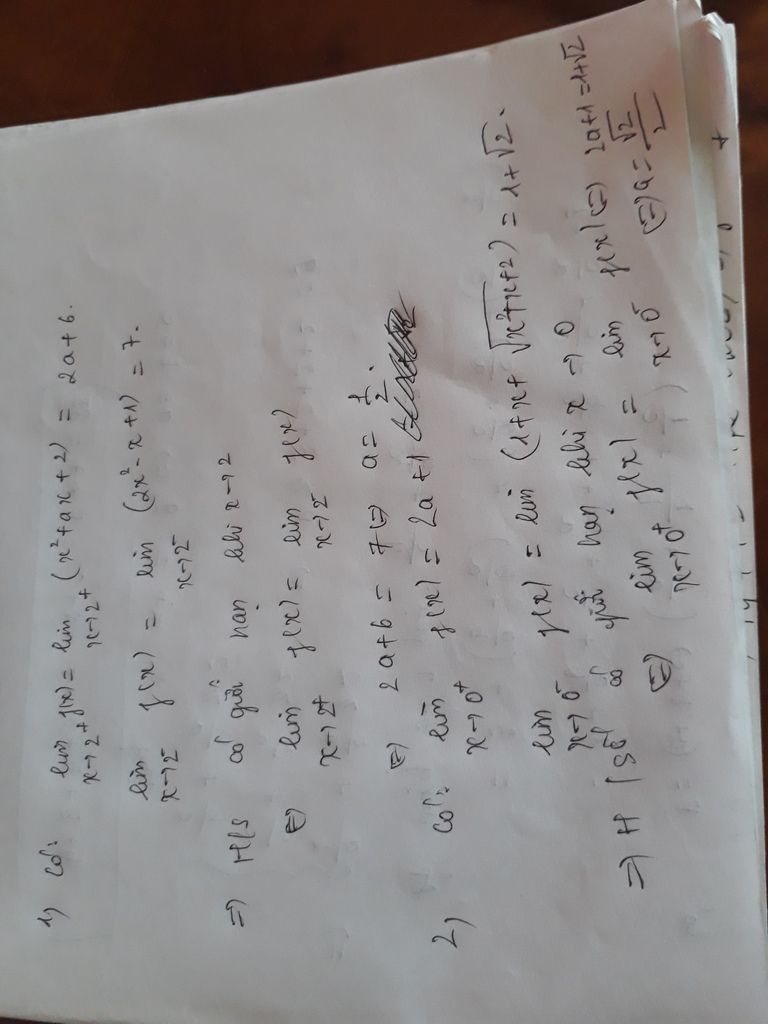 1) Có: lim x→2⁺ f(x) = lim x→2⁺ (x² + ax + 2) = 2a + 6.
lim x→2⁻ f(x) = lim x→2⁻ (2x² - x + 1) = 7.
⇒ H/S có giới hạn khi x→2
⇔ lim x→2⁺ f(x) = lim x→2⁻ f(x)
⇔ 2a + 6 = 7 ⇔ a = 1/2.
2) Có: lim x→0⁺ f(x) = 2a + 1
lim x→0⁻ f(x) = lim (1 + x + √(x² + x + 2)) = 1 + √2.
⇒ H/Số có giới hạn khi x→0
⇔ lim x→0⁺ f(x) = lim x→0⁻ f(x) ⇔ 2a + 1 = 1 + √2
⇔ a = √2/2